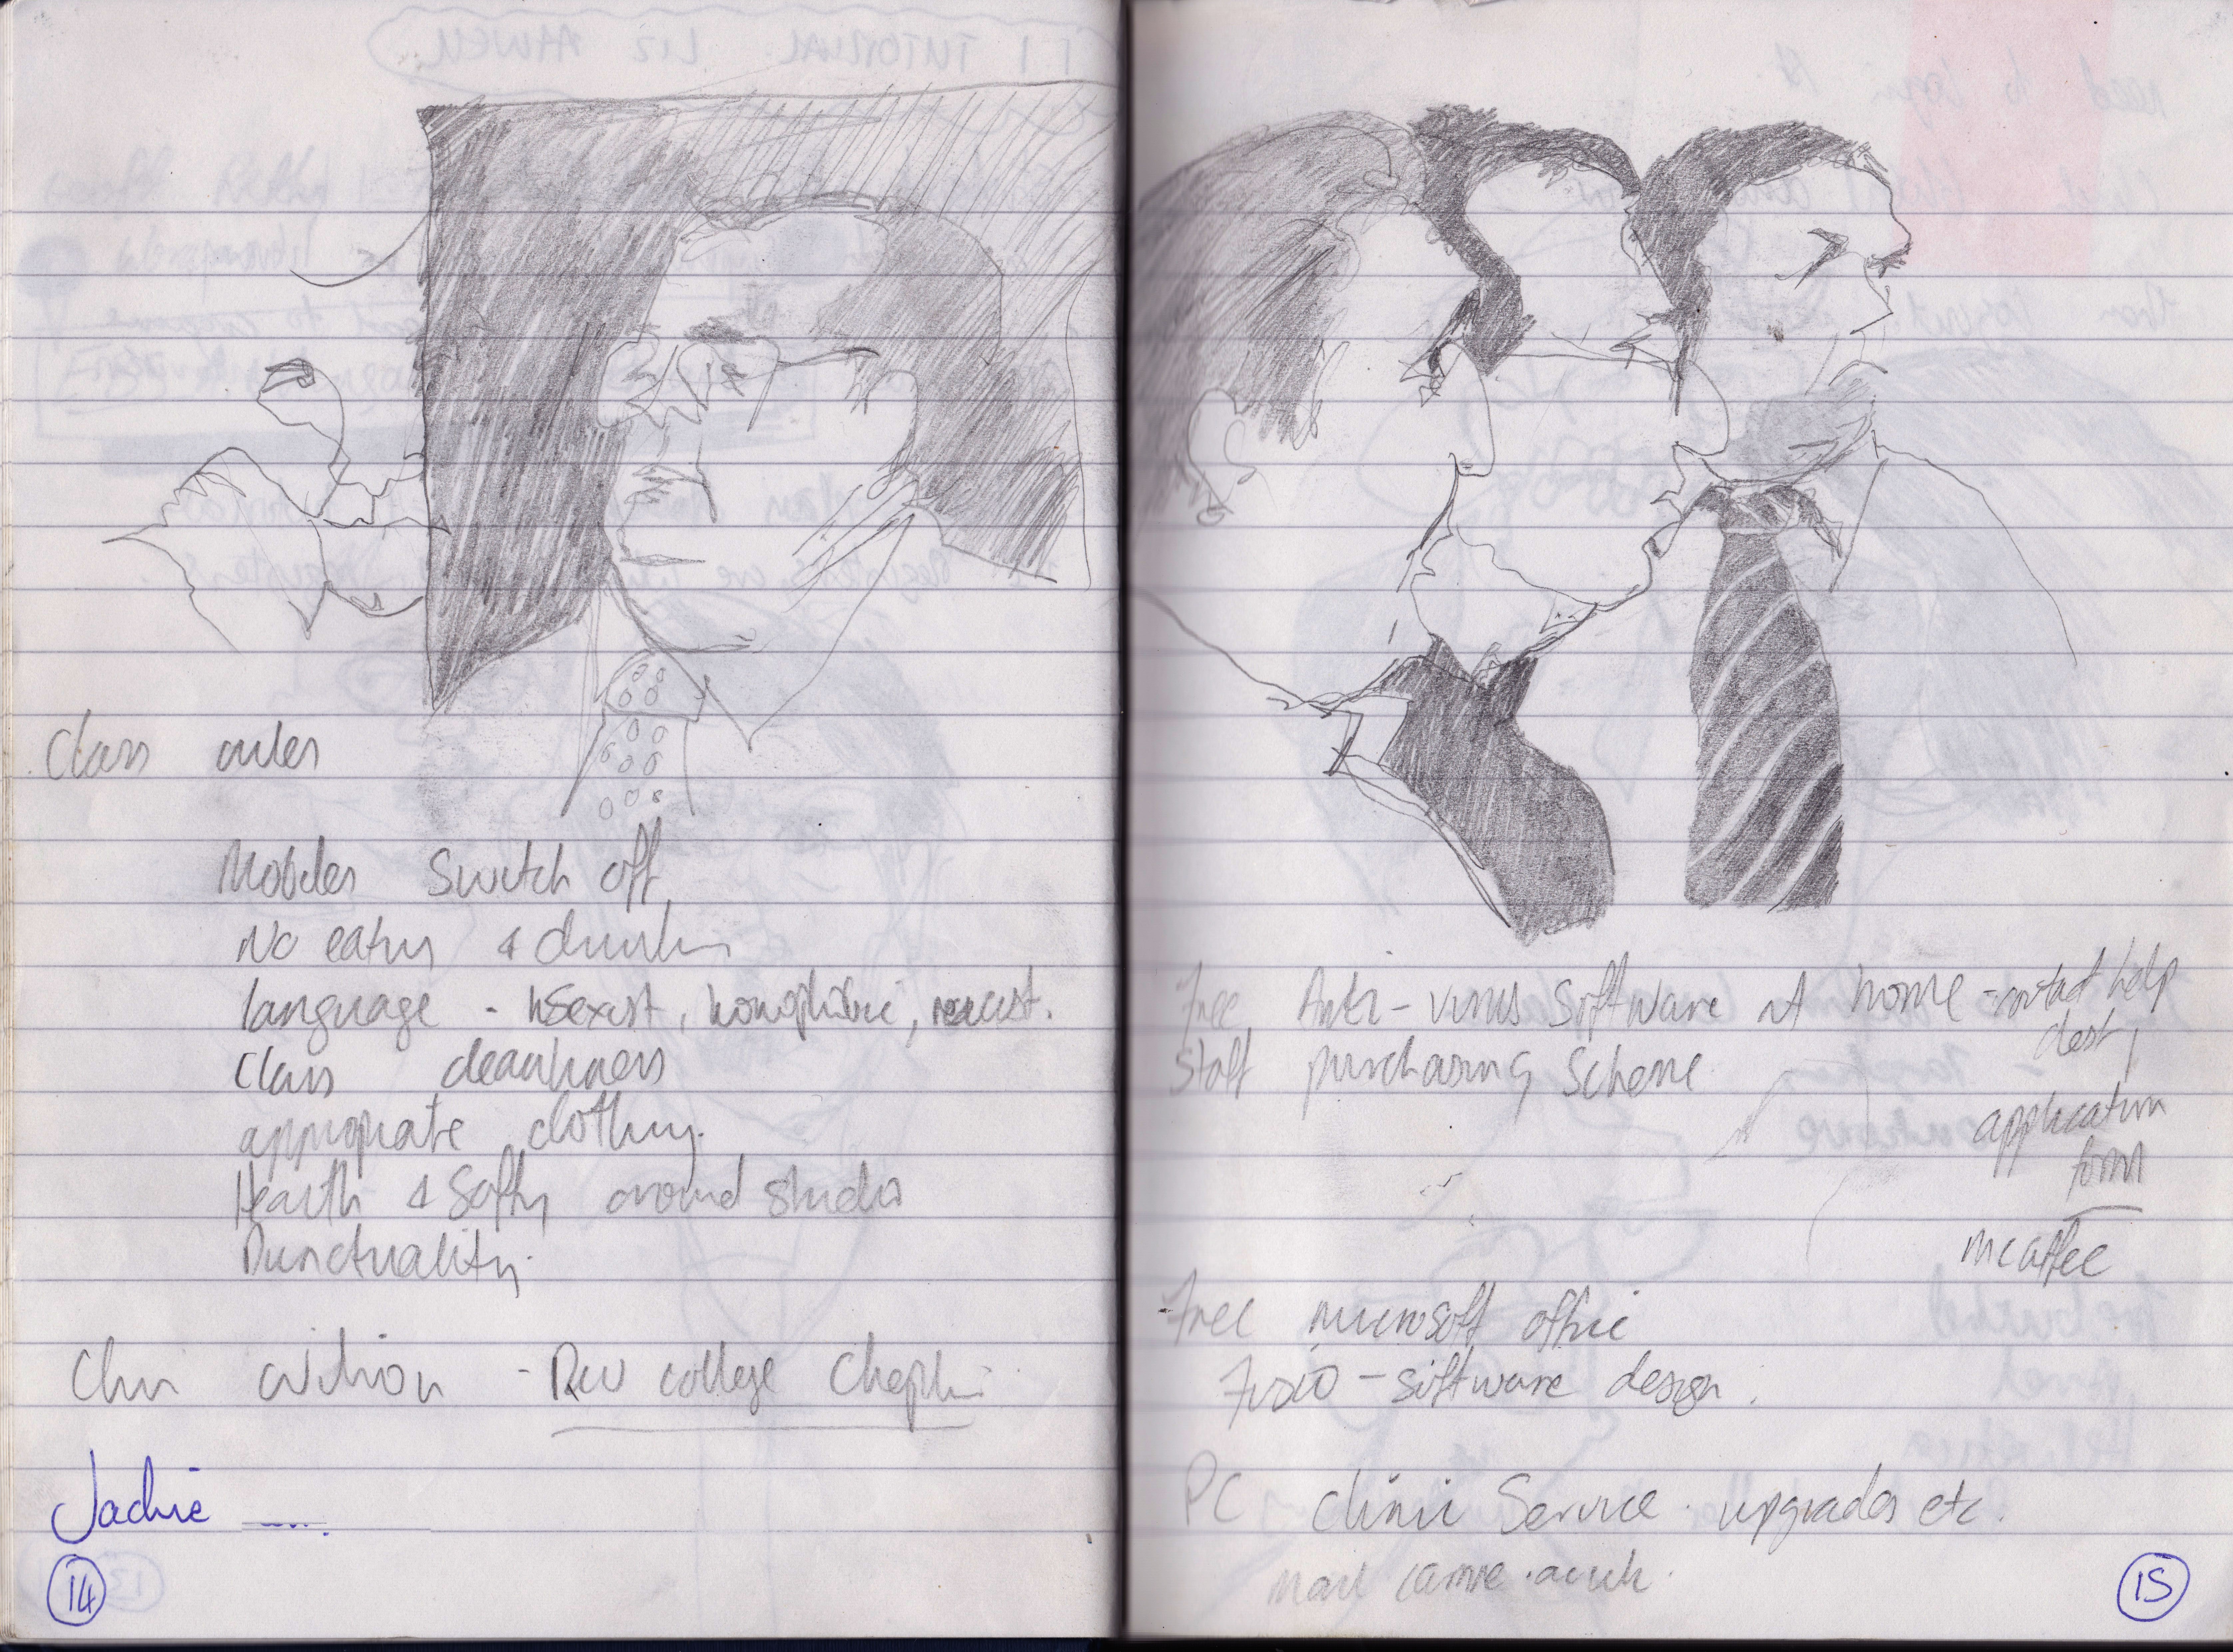 Class rules
Mobiles Switch off
No eating & drinking
language - sexist, homophibic, racist.
Class cleanliness
appropriate clothing.
Health & Safty around studio
Punctuality.
college
Jackie
14
Free Anti-virus Software at home - contact help
desk
Staff purchasing Scheme
application
form
mcaffee
Free microsoft office
- software design.
PC clinic Service. upgrades etc.
15